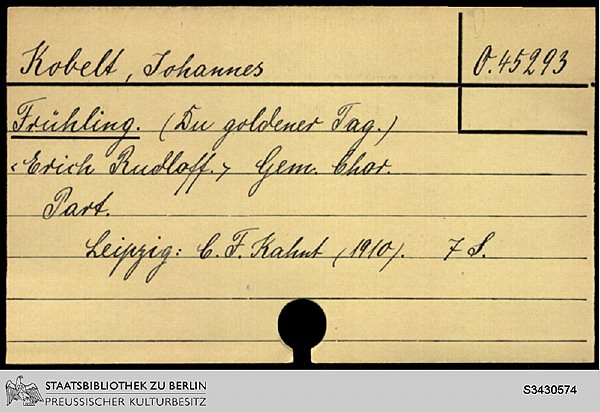 Kobelt, Johannes
O.45293
Frühling. (Du goldener Tag.)
<Erich Rudloff.> Gem. Chor.
Part.
Leipzig: C. F. Kahnt (1910). 7 S.
STAATSBIBLIOTHEK ZU BERLIN
PREUSSISCHER KULTURBESITZ
S3430574